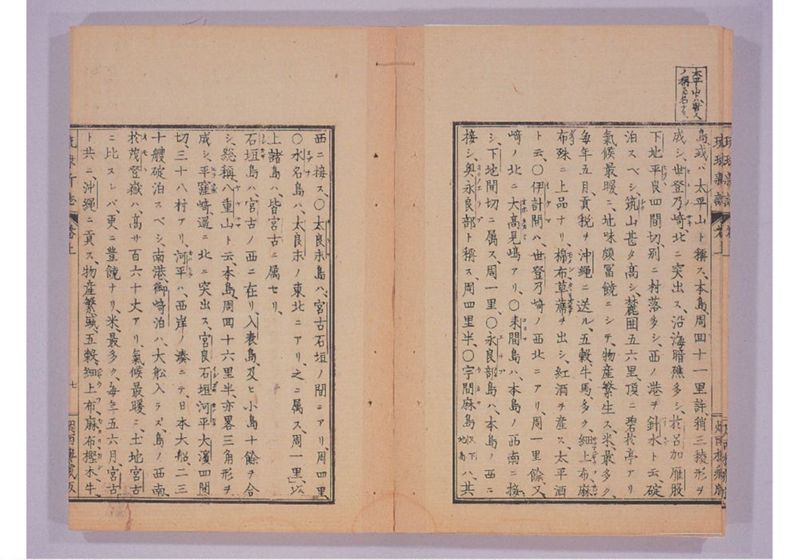 太平山ハ人
ノ稱スル名ナリ
島或ハ太平山ト稱ス、本島周四十一里許、稍三稜形ヲ
成シ、世登乃崎北ニ突出ス、沿海暗礁多シ、於呂加雁股
下地平良四間切、別ニ村落多シ、西ノ港ヲ針水ト云、碇
泊スベシ、筑山甚タ高シ、麓囲五六里、頂ニ碧於亭アリ
氣候最暖ニ、地味頗冨饒ニシテ、物産繁生ス、米最多ク、
毎年五月、貢税ヲ沖縄ニ送ル、五穀、牛、馬多ク、細上布、麻
布殊ニ上品ナリ、棉布草蓆ヲ出シ、紅酒ヲ産ス、太平酒
ト云、〇伊計間ハ、世登乃崎ノ西北ニアリ、周一里餘、又
崎ノ北ニ大高見嶋アリ、〇来間島ハ、本島ノ西南ニ接
シ、下地間切ニ属ス、周一里、〇永良部島ハ、本島ノ西ニ
接シ、奥永良部ト稱ス、周四里半、〇宇間麻島以下地島ハ、其
西ニ接ス、〇太良末島ハ、宮古石垣ノ間ニアリ、周四里
〇水名島ハ、太良末ノ東北ニアリ、之ニ属ス、周一里、以
上諸島ハ、皆宮古ニ属セリ、
石垣島ハ、宮古ノ西ニ在リ、入表島及ヒ小島十餘ヲ合
シ、総稱八重山ト云、本島周四十六里半、亦畧三角形ヲ
成シ、平窪崎遥ニ北ニ突出ス、宮良石垣河平大濵四間
切、三十八村アリ、河平ハ、西岸ノ湊ニテ、日本大船、二三
十艘破泊スベシ、南港御崎泊ハ、大舩入ラズ、島ノ西南、
於茂登嶽ハ、高サ百六十丈アリ、氣候最暖ニ、土地宮古
ニ比スレバ、更ニ豊饒ナリ、米最多ク、毎年五六月、宮古
ト共ニ沖縄ニ貢ス、物産繁、五穀、細上布、麻布、樫木、牛、
七